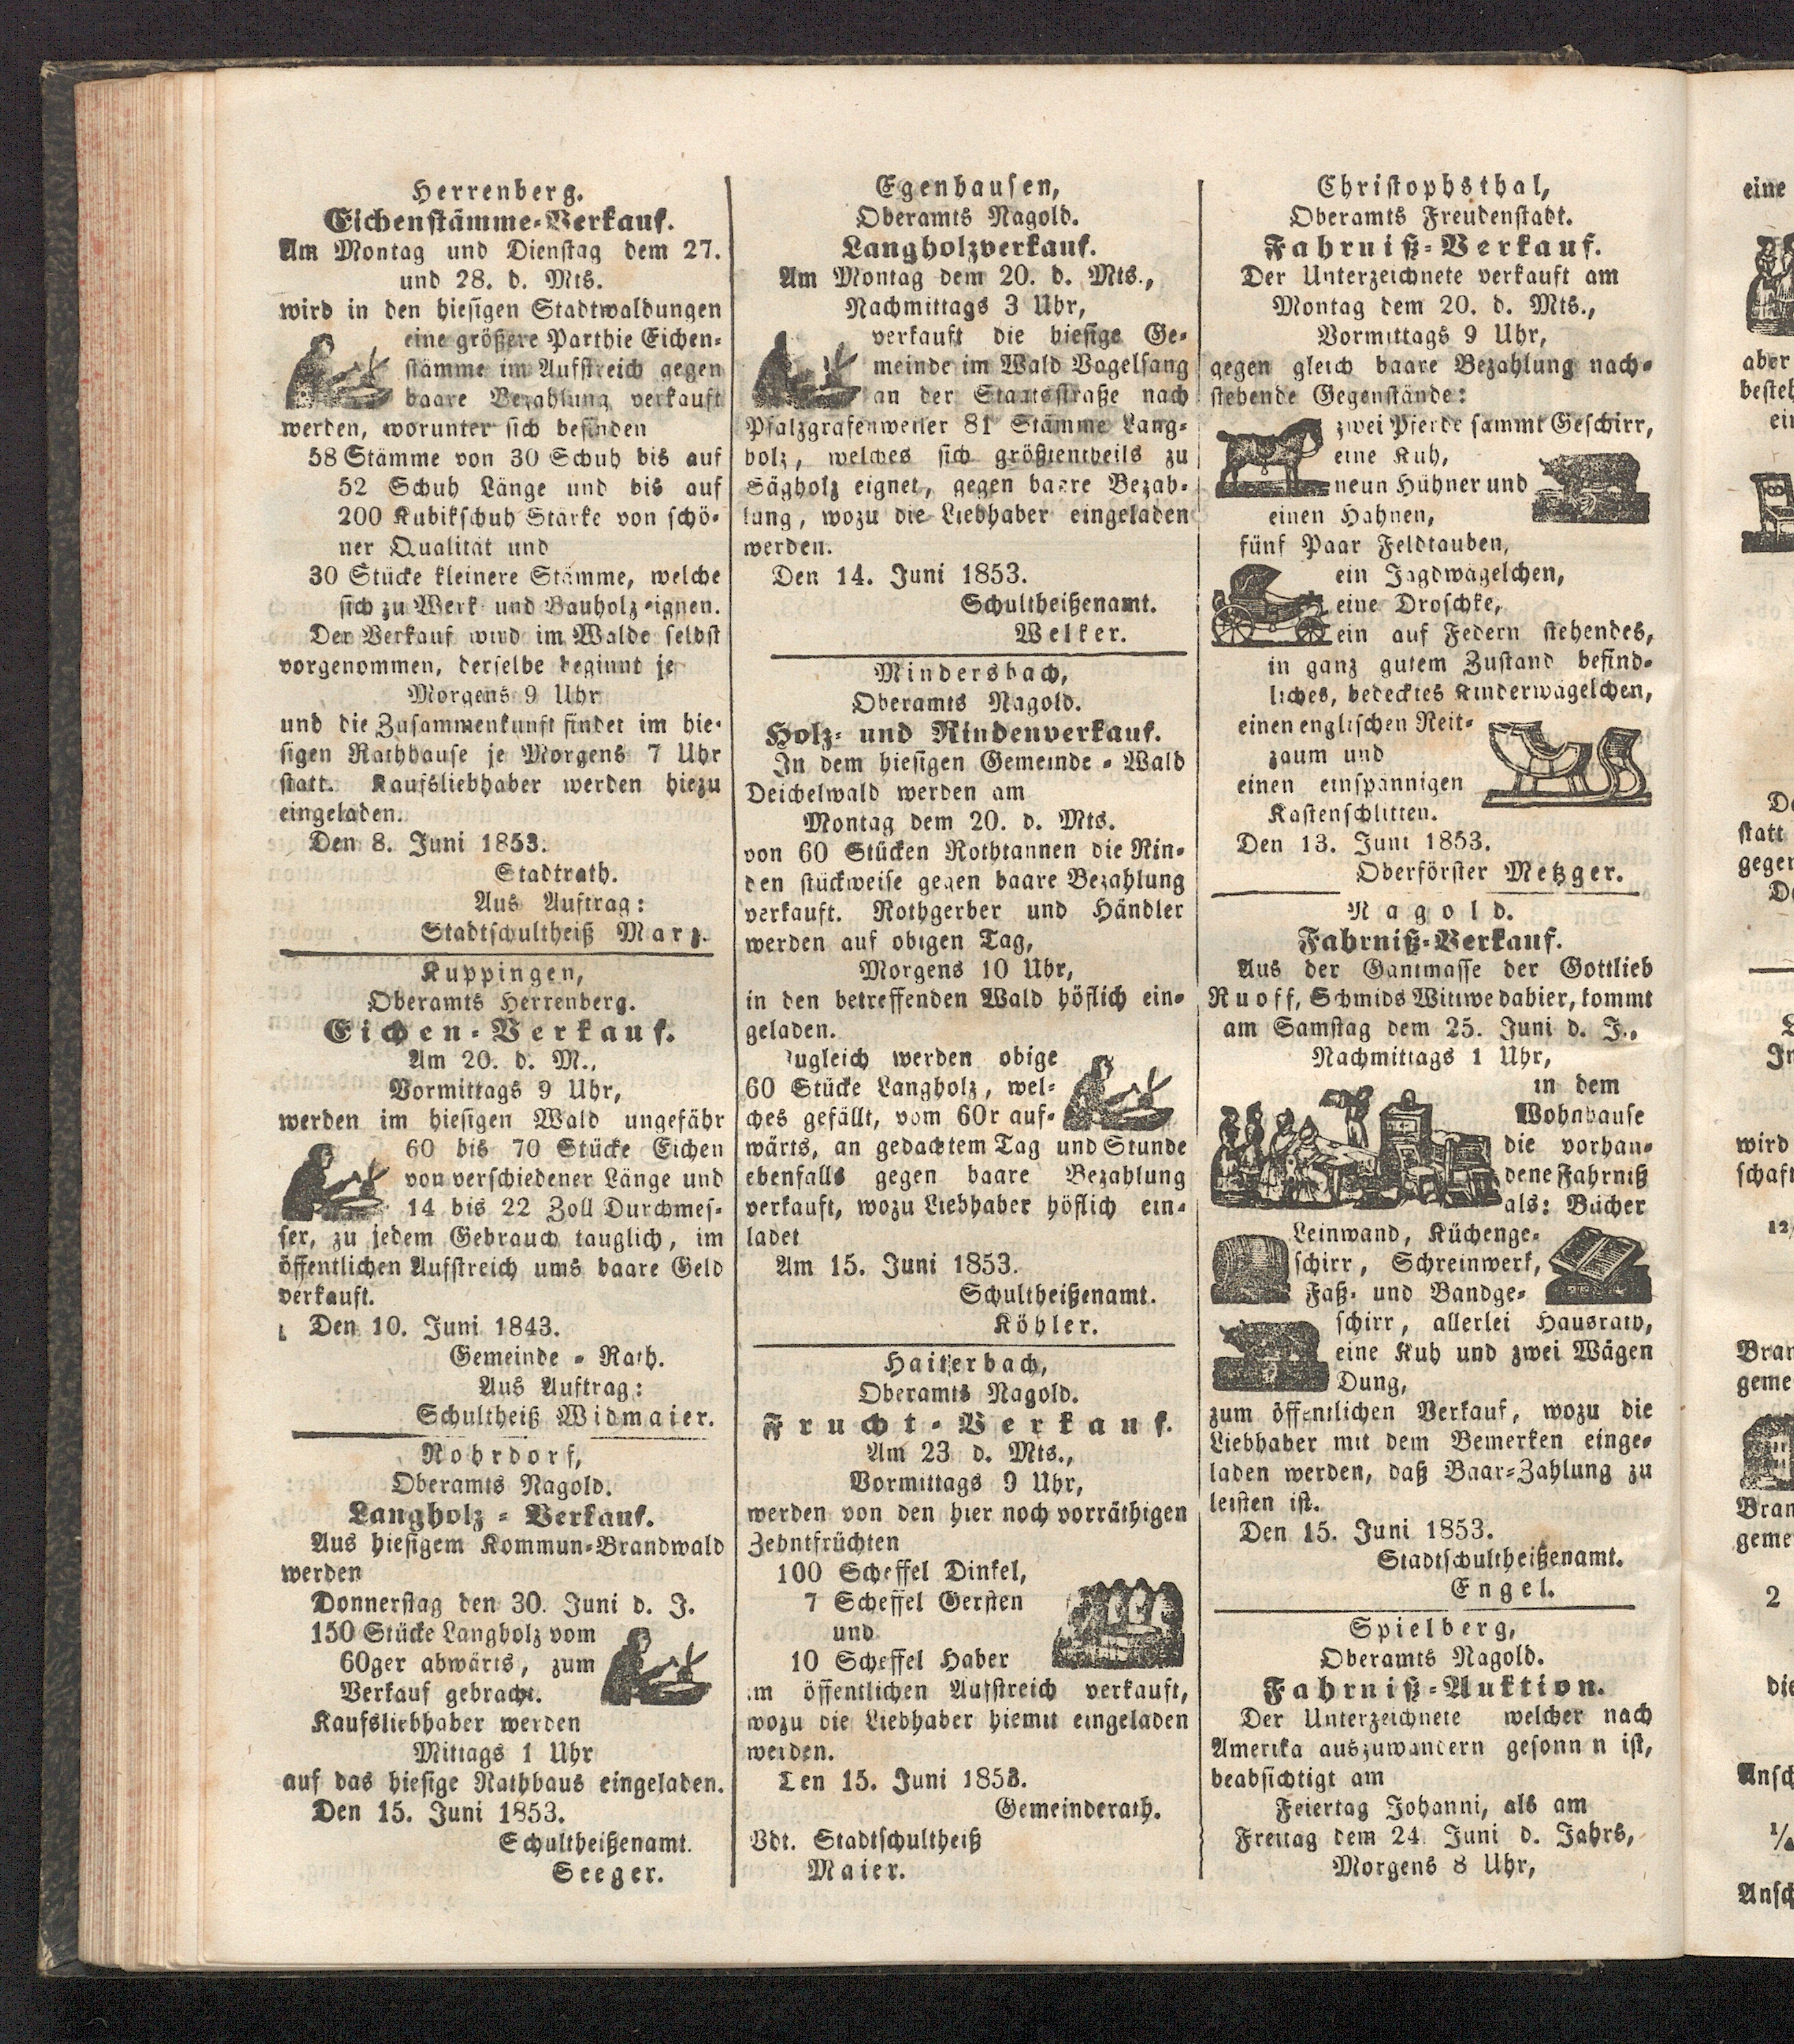 Herrenberg.
Eichenstämme-Verkauf.
Am Montag und Dienstag dem 27.
und 28. d. Mts.
wird in den hiesigen Stadtwaldungen
eine größere Parthie Eichen-
stämme im Aufstreich gegen
baare Bezahlung verkauft
werden, worunter sich befinden
58 Stämme von 30 Schuh bis auf
52 Schuh Länge und bis auf
200 Kubikschuh Stärke von schö-
ner Qualität und
30 Stücke kleinere Stämme, welche
sich zu Werk- und Bauholz eignen.
Der Verkauf wird im Walde selbst
vorgenommen, derselbe beginnt je
Morgens 9 Uhr
und die Zusammenkunft findet im hie-
sigen Rathhause je Morgens 7 Uhr
statt. Kaufsliebhaber werden hiezu
eingeladen.
Den 8. Juni 1853.
Stadtrath.
Aus Auftrag:
Stadtschultheiß Marz.
Kuppingen,
Oberamts Herrenberg.
Eichen-Verkauf.
Am 20. d. M.,
Vormittags 9 Uhr,
werden im hiesigen Wald ungefähr
60 bis 70 Stücke Eichen
von verschiedener Länge und
14 bis 22 Zoll Durchmes-
ser, zu jedem Gebrauch tauglich, im
öffentlichen Aufstreich ums baare Geld
verkauft.
Den 10. Juni 1843.
Gemeinde-Rath.
Aus Auftrag:
Schultheiß Widmaier.
Rohrdorf,
Oberamts Nagold.
Langholz-Verkauf.
Aus hiesigem Kommun-Brandwald
werden
Donnerstag den 30. Juni d. J.
150 Stücke Langholz vom
60ger abwärts, zum
Verkauf gebracht.
Kaufsliebhaber werden
Mittags 1 Uhr
auf das hiesige Rathhaus eingeladen.
Den 15. Juni 1853.
Schultheißenamt.
Seeger.
Egenhausen,
Oberamts Nagold.
Langholzverkauf.
Am Montag dem 20. d. Mts.,
Nachmittags 3 Uhr,
verkauft die hiesige Ge-
meinde im Wald Vogelsang
an der Staatsstraße nach
Pfalzgrafenweiler 81 Stämme Lang-
holz, welches sich größtentheils zu
Sägholz eignet, gegen baare Bezah-
lung, wozu die Liebhaber eingeladen
werden.
Den 14. Juni 1853.
Schultheißenamt.
Welker.
Mindersbach,
Oberamts Nagold.
Holz- und Rindenverkauf.
In dem hiesigen Gemeinde-Wald
Deichelwald werden am
Montag dem 20. d. Mts.
von 60 Stücken Rothtannen die Rin-
den stückweise gegen baare Bezahlung
verkauft. Rothgerber und Händler
werden auf obigen Tag,
Morgens 10 Uhr,
in den betreffenden Wald höflich ein-
geladen.
Zugleich werden obige
60 Stücke Langholz, wel-
ches gefällt, vom 60r auf-
wärts, an gedachtem Tag und Stunde
ebenfalls gegen baare Bezahlung
verkauft, wozu Liebhaber höflich ein-
ladet
Am 15. Juni 1853.
Schultheißenamt.
Köhler.
Haiterbach,
Oberamts Nagold.
Frucht-Verkauf.
Am 23 d. Mts.,
Vormittags 9 Uhr,
werden von den hier noch vorräthigen
Zehntfrüchten
100 Scheffel Dinkel,
7 Scheffel Gersten
und
10 Scheffel Haber
im öffentlichen Aufstreich verkauft,
wozu die Liebhaber hiemit eingeladen
werden.
Den 15. Juni 1853.
Gemeinderath.
Vdt. Stadtschultheiß
Maier.
Christophsthal,
Oberamts Freudenstadt.
Fahrniß-Verkauf.
Der Unterzeichnete verkauft am
Montag dem 20. d. Mts.,
Vormittags 9 Uhr,
gegen gleich baare Bezahlung nach-
stehende Gegenstände:
zwei Pferde sammt Geschirr,
eine Kuh,
neun Hühner und
einen Hahnen,
fünf Paar Feldtauben,
ein Jagdwägelchen,
eine Droschke,
ein auf Federn stehendes,
in ganz gutem Zustand befind-
liches, bedecktes Kinderwägelchen,
einen englischen Reit-
zaum und
einen einspännigen
Kastenschlitten.
Den 13. Juni 1853.
Oberförster Metzger.
Nagold.
Fahrniß-Verkauf.
Aus der Gantmasse der Gottlieb
Ruoff, Schmids Wittwe dahier, kommt
am Samstag dem 25. Juni d. J.,
Nachmittags 1 Uhr,
in dem
Wohnhause
die vorhan-
dene Fahrniß
als: Bücher
Leinwand, Küchenge-
schirr, Schreinwerk,
Faß- und Bandge-
schirr, allerlei Hausrath,
eine Kuh und zwei Wägen
Dung,
zum öffentlichen Verkauf, wozu die
Liebhaber mit dem Bemerken einge-
laden werden, daß Baar-Zahlung zu
leisten ist.
Den 15. Juni 1853.
Stadtschultheißenamt.
Engel.
Spielberg,
Oberamts Nagold.
Fahrniß-Auktion.
Der Unterzeichnete welcher nach
Amerika auszuwandern gesonn n ist,
beabsichtigt am
Feiertag Johanni, als am
Freitag dem 24. Juni d. Jahrs,
Morgens 8 Uhr,
eine
aber
besteh
ein
statt
gegen
wird
schaft
12
Bran
geme
Bran
geme
2
die
Ansch
Ansch